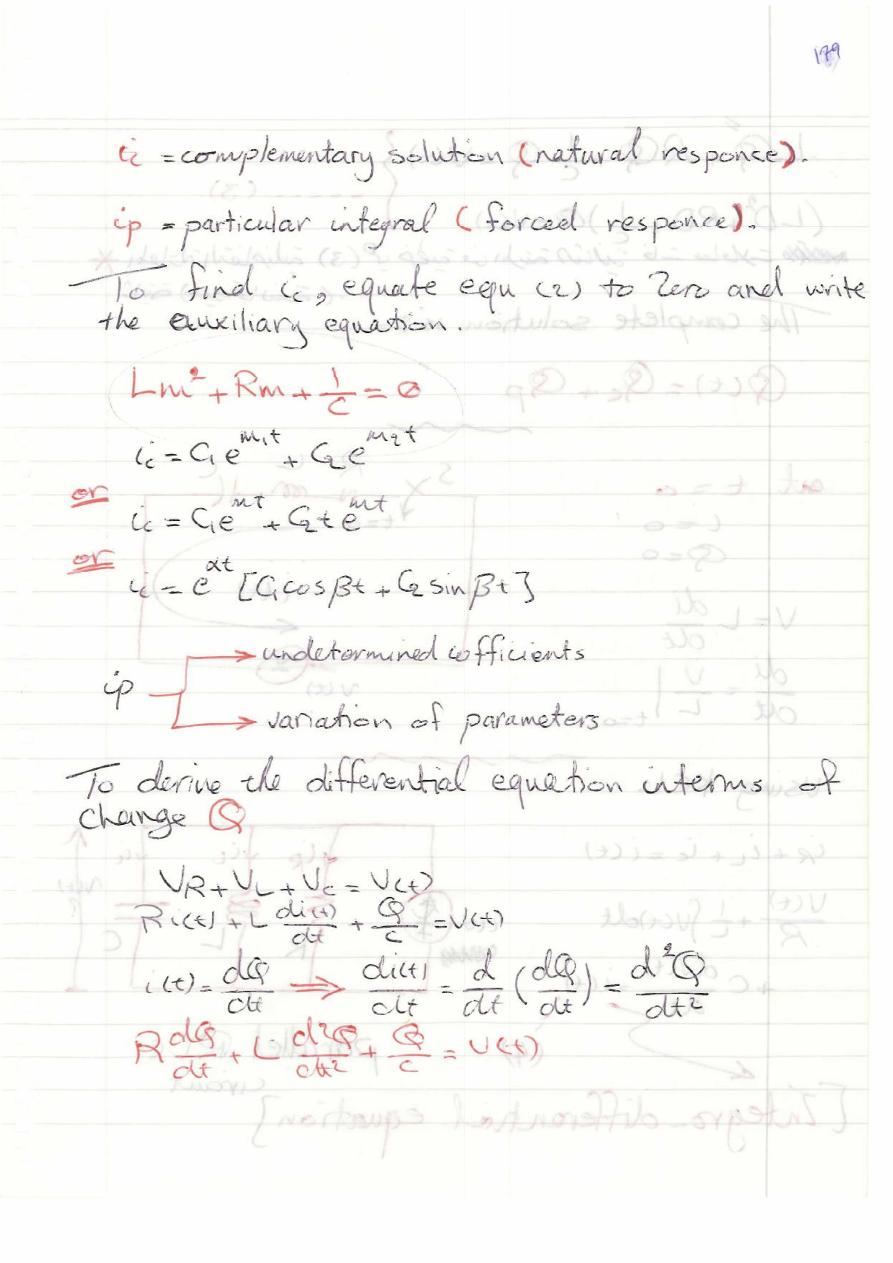 179
ic = complementary solution (natural responce).
ip = particular integral (forced responce).
To find ic, equate equ (2) to Zero and write
the auxiliary equation.
Lm² + Rm + 1/C = 0
ic = C₁e^{m₁t} + C₂e^{m₂t}
or
ic = C₁e^{mt} + C₂te^{mt}
or
ic = e^{αt} [C₁cosβt + C₂ sinβt]
undetermined cofficients
ip
variation of parameters
To derive the differential equation interms of
change Q
VR + VL + Vc = V(t)
Ri(t) + L di(t)/dt + Q/c = V(t)
i(t) = dQ/dt ⟹ di(t)/dt = d/dt (dQ/dt) = d²Q/dt²
R dQ/dt + L d²Q/dt² + Q/c = V(t)